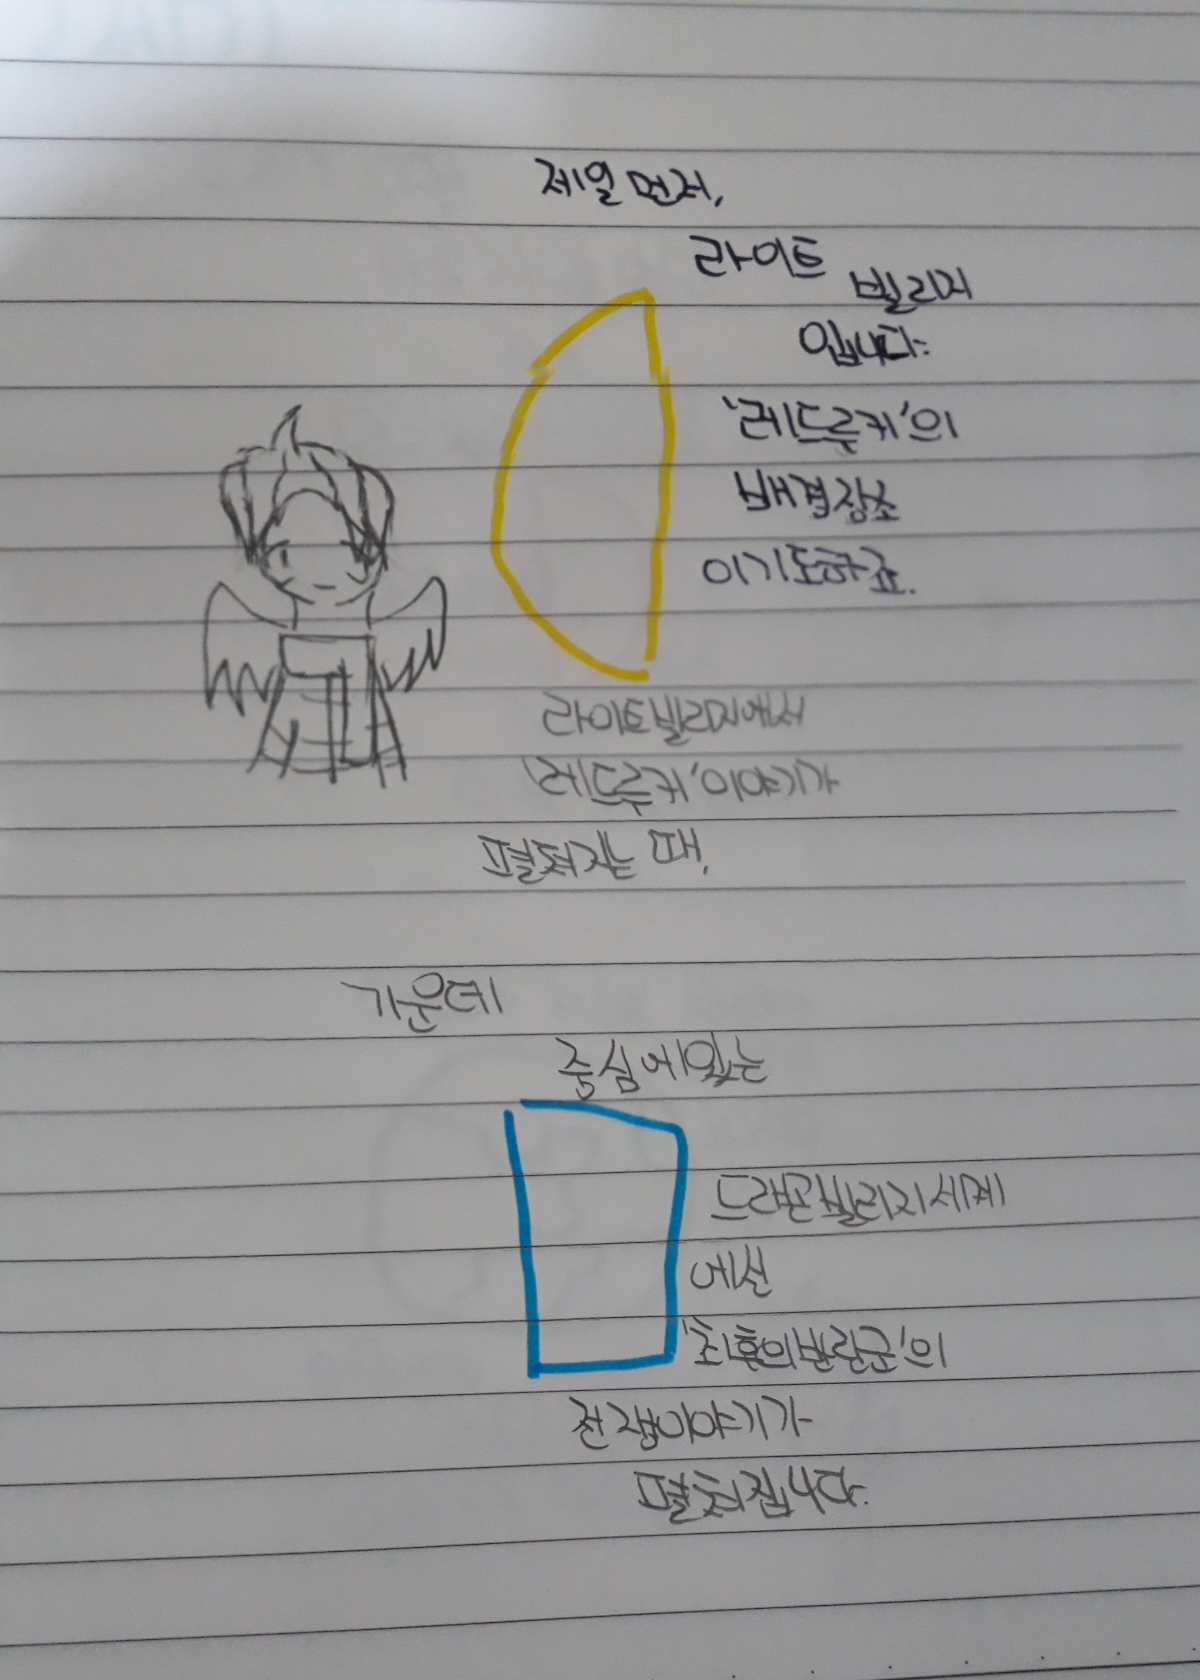 제일 먼저,
라이트 빌리지
입니다.
'레드루키'의
배경장소
이기도하죠.
라이트빌리지에서
'레드루키'이야기가
펼쳐지는 때,
가운데
중심에있는
드래곤빌리지세계
에선
'최후의반란군'의
전쟁이야기가
펼쳐집니다.